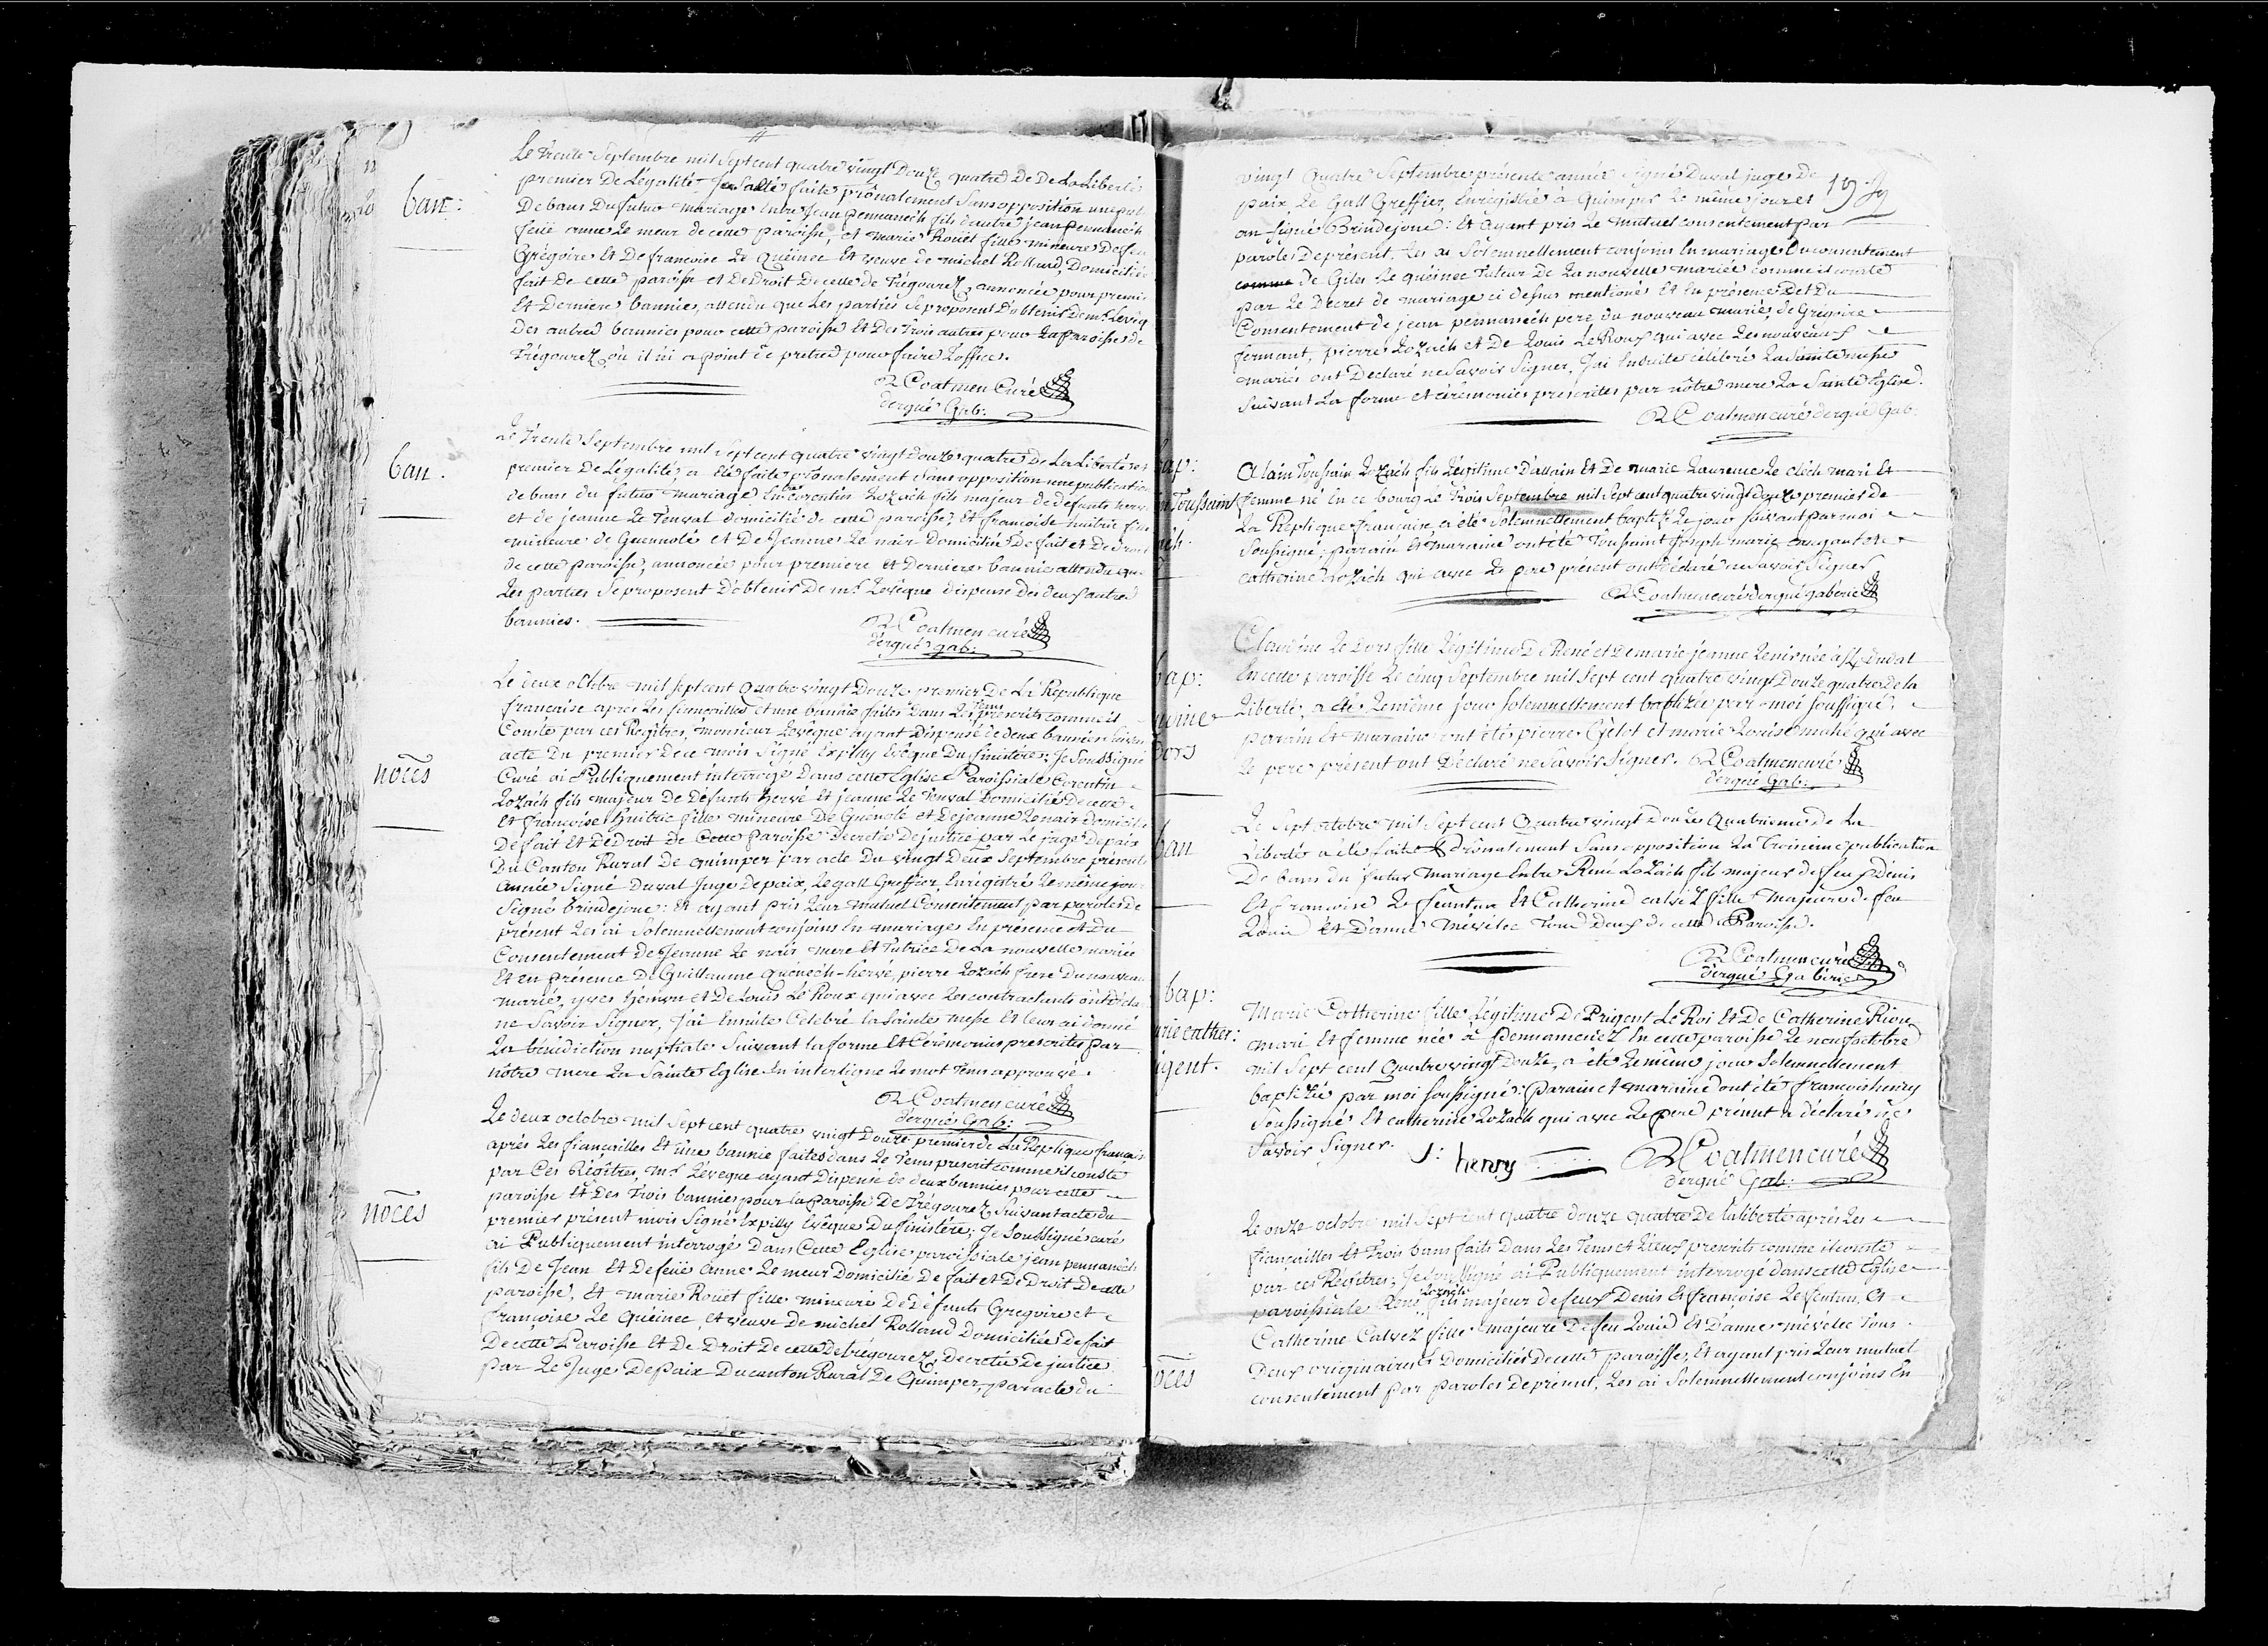 ban:
Le trente Septembre mil Sept cent quatre vingt Douze quatre De De La Liberté
premier De Légalité, a été faite prônalement Sans opposition une publ
De bans Du futur mariage Entre Jean pennanech fils d'autre jean pennanech
feüe anne Le meur de cette paroisse, et marie Rouët fille mineure De feu
Grégoire Et De francoise Le Quéinec Et veuve de michel Rolland, Domiciliée
fait De cette paroisse et De Droit De celle de Trégourez, annoncée pour premi
Et Derniere bannie, attendu que Les parties Se proposent D'obtenir De mr Lévêq
Des autres bannies pour cette paroisse Et Des Trois autres pour La Paroisse de
Trégourez où il ni a point de prêtre pour faire L'office.
R Coatmen Curé
d'ergué Gab:
ban.
Le Trente Septembre mil Sept cent quatre vingt Douze quatre De La Liberté et
premier De Légalité, a été faite prônalement Sans opposition une publication
de bans du futur mariage Entre Corentin Lozach fils majeur De defunts herve
et de jeanne Le Tenval domicilié de cette paroisse, Et francoise huitric fille
mineure de Guennolé Et De Jeanne Le nair Domiciliée De fait et De Droit
de cette paroisse, annoncée pour premiere et Derniere bannie attendu que
Les parties Se proposent D'obtenir De mr Levêque dispense des deux autres
bannies.
R Coatmen curé
d'ergué gab:
nôces
Le deux octobre mil Sept cent Quatre vingt Douze premier De La République
francaise après Les fiançailles et une bannie faites Dans Les Tems prescrits comme il
Conste par ces Régitres, monsieur Levêque ayant Dispensé de deux bannies suivan
acte Du premier De ce mois Signé Expilly Evêque Du finistère; Je Soussigné
Curé ai Publiquement interrogé Dans cette Eglise Paroissiale Corentin
Lozach fils majeur De Défunts hervé Et jeanne Le Tenval Domicilié De cette
Et francoise huitric fille mineure De Guénolé et De jeanne Le nair Domicili
De fait Et De Droit De Cette Paroisse Decretée De justice par Le juge De paix
Du Canton Rural De quimper par acte Du vingt Deux Septembre présente
année Signé Duval Juge De paix, Le gall Greffier, Enregistré Le même jou
Signé brindejonc: Et ayant pris Leur mutuel Consentement par paroles de
présent Les ai Solemnellement conjoins En mariage En présence et Du
Consentement De Jeanne Le nair mere Et Tutrice De La nouvelle mariée
Et en présence De Guillaume Quénéch-hervé, pierre Lozach frere Du nouveau
marié, yves hémon et De Louis Le Roux qui avec Les contractants ont Décla
ne Savoir Signer, J'ai Ensuite Célébré la Sainte messe Et Leur ai donné
La bénédiction nuptiale Suivant la forme Et Cérémonies prescrites par
nôtre mere La Sainte Eglise En interligne Le mot Tems approuvé.
R Coatmen curé
d'ergué Gab:
nôces
Le deux octobre mil Sept cent quatre vingt Douze premier de La Replique francais
après Les fiançailles Et une bannie faites dans Le Tems prescrit comme il conste
par Ces Régîtres, mr Lévêque ayant Dispensé de deux bannies pour cette
paroisse Et Des Trois bannies pour la Paroisse De Trégourez Suivant acte du
premier présent mois Signé Expilly Evêque Du finistère; Je Soussigné curé
ai Publiquement interrogé Dans Cette Eglise paroissiale jean pennanech
fils De Jean Et De feüe Anne Le meur Domicilié De fait et De Droit De cette
paroisse, Et marie Rouët fille mineure De Défunts Gregoire et
francoise Le Quéinec, et veuve De michel Rolland Domiciliée De fait
De cette Paroisse Et De Droit De celle de trégourez, Decretée De justice
par Le Juge De paix Du canton Rural De Quimper, par acte du
19
vingt Quatre Septembre présente année Signé Duval juge De
paix, Le Gall Greffier, Enrégistré à Quimper Le même jour et
an Signé Brindejonc: Et Ayant pris Le mutuel consentement par
paroles De présent, Les ai Solemnellement conjoins En mariage Du consentement
comme de Giles Le quéinec Tuteur De La nouvelle mariée comme il conste
par Le Décret de mariage ci dessus mentionés Et En présence Det Du
Consentement de jean pennanech pere du nouveau mariés, de Grégoire
fermant, pierre Lozach et De Louis Le Roux qui avec Les nouveaux
mariés ont Declaré ne Savoir Signer, J'ai Ensuite célébré La Sainte messe
Suivant La forme et cérémonies prescrites par nôtre mere La Sainte Eglise.
R Coatmen curé d'ergué Gab:
ap:
n Toussaint
ach.
Alain Toussain Lozach fils Légitime D'allain Et De marie Laurence Le cléch mari Et
femme né En ce bourg Le Trois Septembre mil Sept cent quatre vingt douze premier de
La Replique francaise a été Solemnellement baptisé Le jour Suivant par moi
Soussigné: parain Et maraine ont été Toussaint Joseph marie et
catherine Lozach qui avec Le pere présent ont Déclaré ne Savoir Signer
R Coatmen curé d'ergué gaberic
bap:
udine
Dors
Claudine Le Dors fille Légitime De René et De marie jeanne née à
En cette paroisse Le cinq Septembre mil Sept cent quatre vingt Douze quatre de la
Liberté, a été Le même jour Solemnellement baptizée par moi Soussigné,
parain Et maraine ont été pierre Gélot et marie Louise mahé qui avec
Le pere présent ont Déclaré ne Savoir Signer. R Coatmen curé
d'ergué Gab:
ban
Le Sept octobre mil Sept cent Quatre vingt Douze Quatrieme de La
Liberté a été faite prônalement Sans opposition La Troisieme publication
De bans du futur mariage Entre René Lozach fils majeur de feu Denis
Et francoise Le feunteun Et Catherine calvez fille majeure de feu
Louis Et D'anne mévélec Tous Deux de cette Paroisse.
R Coatmen curé
d'ergué Gabéric
bap:
rie cather:
igent.
Marie Catherine fille Légitime De Prigent Le Roi Et De Catherine Riou
mari Et femme née à Pennamenez En cette paroisse Le neuf octobre
mil Sept cent Quatre vingt Douze, a été Le même jour Solemnellement
baptizée par moi Soussigné: Parain et maraine ont été francois henry
Soussigné Et catherine Lozach qui avec Le pere présent a déclaré ne
Savoir Signer. f: henry R Coatmen curé
d'ergué Gab:
oces
Le onze octobre mil Sept cent quatre douze quatre De la liberté après Les
fiançailles Et Trois bans faits Dans Les Tems et Lieux prescrits comme il conste
par ces Régitres; Je Soussigné ai Publiquement interrogé dans cette Eglise
paroissiale René Lozach fils majeur de feux Denis Et francoise Le feuntun, Et
Catherine Calvez fille majeure De feu Louis Et D'anne mévélec Tous
Deux originaires Domiciliés De cette paroisse, Et ayant pris Leur mutuel
consentement par paroles De présent, Les ai Solemnellement conjoins En